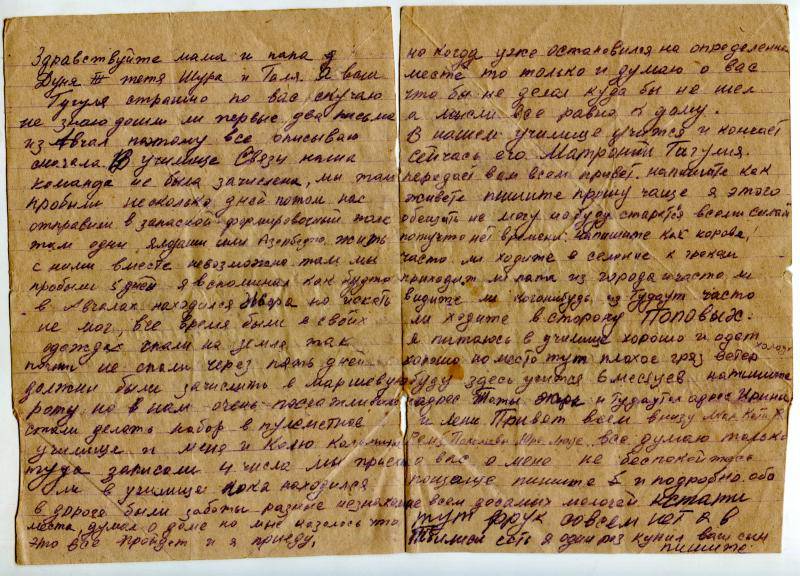 Здравствуйте мама и папа
Дуня тетя Шура и Галя. Я ваш
Гугуля страшно по вас скучаю
не знаю дошли ли первые два письма
из Авчал поэтому все описываю
сначала. В училище Связи наша
команда не была зачислена, мы там
пробыли несколько дней потом нас
отправили в запасной формировочный полк
там одни ялдаши или Азербедж. жить
с ними вместе невозможно там мы
пробыли 5 дней я вспоминал как будто
в Авчалах находился но искать
не мог, все время были в своих
одеждах спали на земле так
почти не спали через пять дней
должны были зачислить в маршевую
роту, но в нам очень посчастливило
стали делать набор в пулеметное
училище и меня и Колю
туда записали 4 числа мы приеха
ли в училище пока находился
в дороге были заботы разные незнаком
места, думал о доме но мне казалось что
это все пройдет и я приеду,
но когда уже остановился на определенне
месте то только и думаю о вас
что бы не делал куда бы не шел
а мысли все равно к дому.
В нашем училище учится и кончает
сейчас его Матроний Гагулия.
передает вам всем привет. напишите как
живете пишите прошу чаще я этого
обещать не могу но буду старатся всеми силами
потучто нет времени. Напишите как корова,
часто ли ходите в селение к грекам
приходит ли папа из города и часто ли
видите ли когонибудь, из Гудаут часто
ли ходите в сторону Поповых.
Я питаюсь в училище хорошо и одет
хорошо но место тут плохое гряз ветер холодн
буду здесь учится 6 месяцев напишите
адрес Тоты и Гудаутск адрес Ирины
и Лени Привет всем внизу
все думаю только
о вас о мене не беспокойтесь
пощалуе пишите и подробно обо
всем досамых мелочей кстати
тут фрук совсем нет а в
Тбилиси есть я один раз купил ваш сын
пишите.